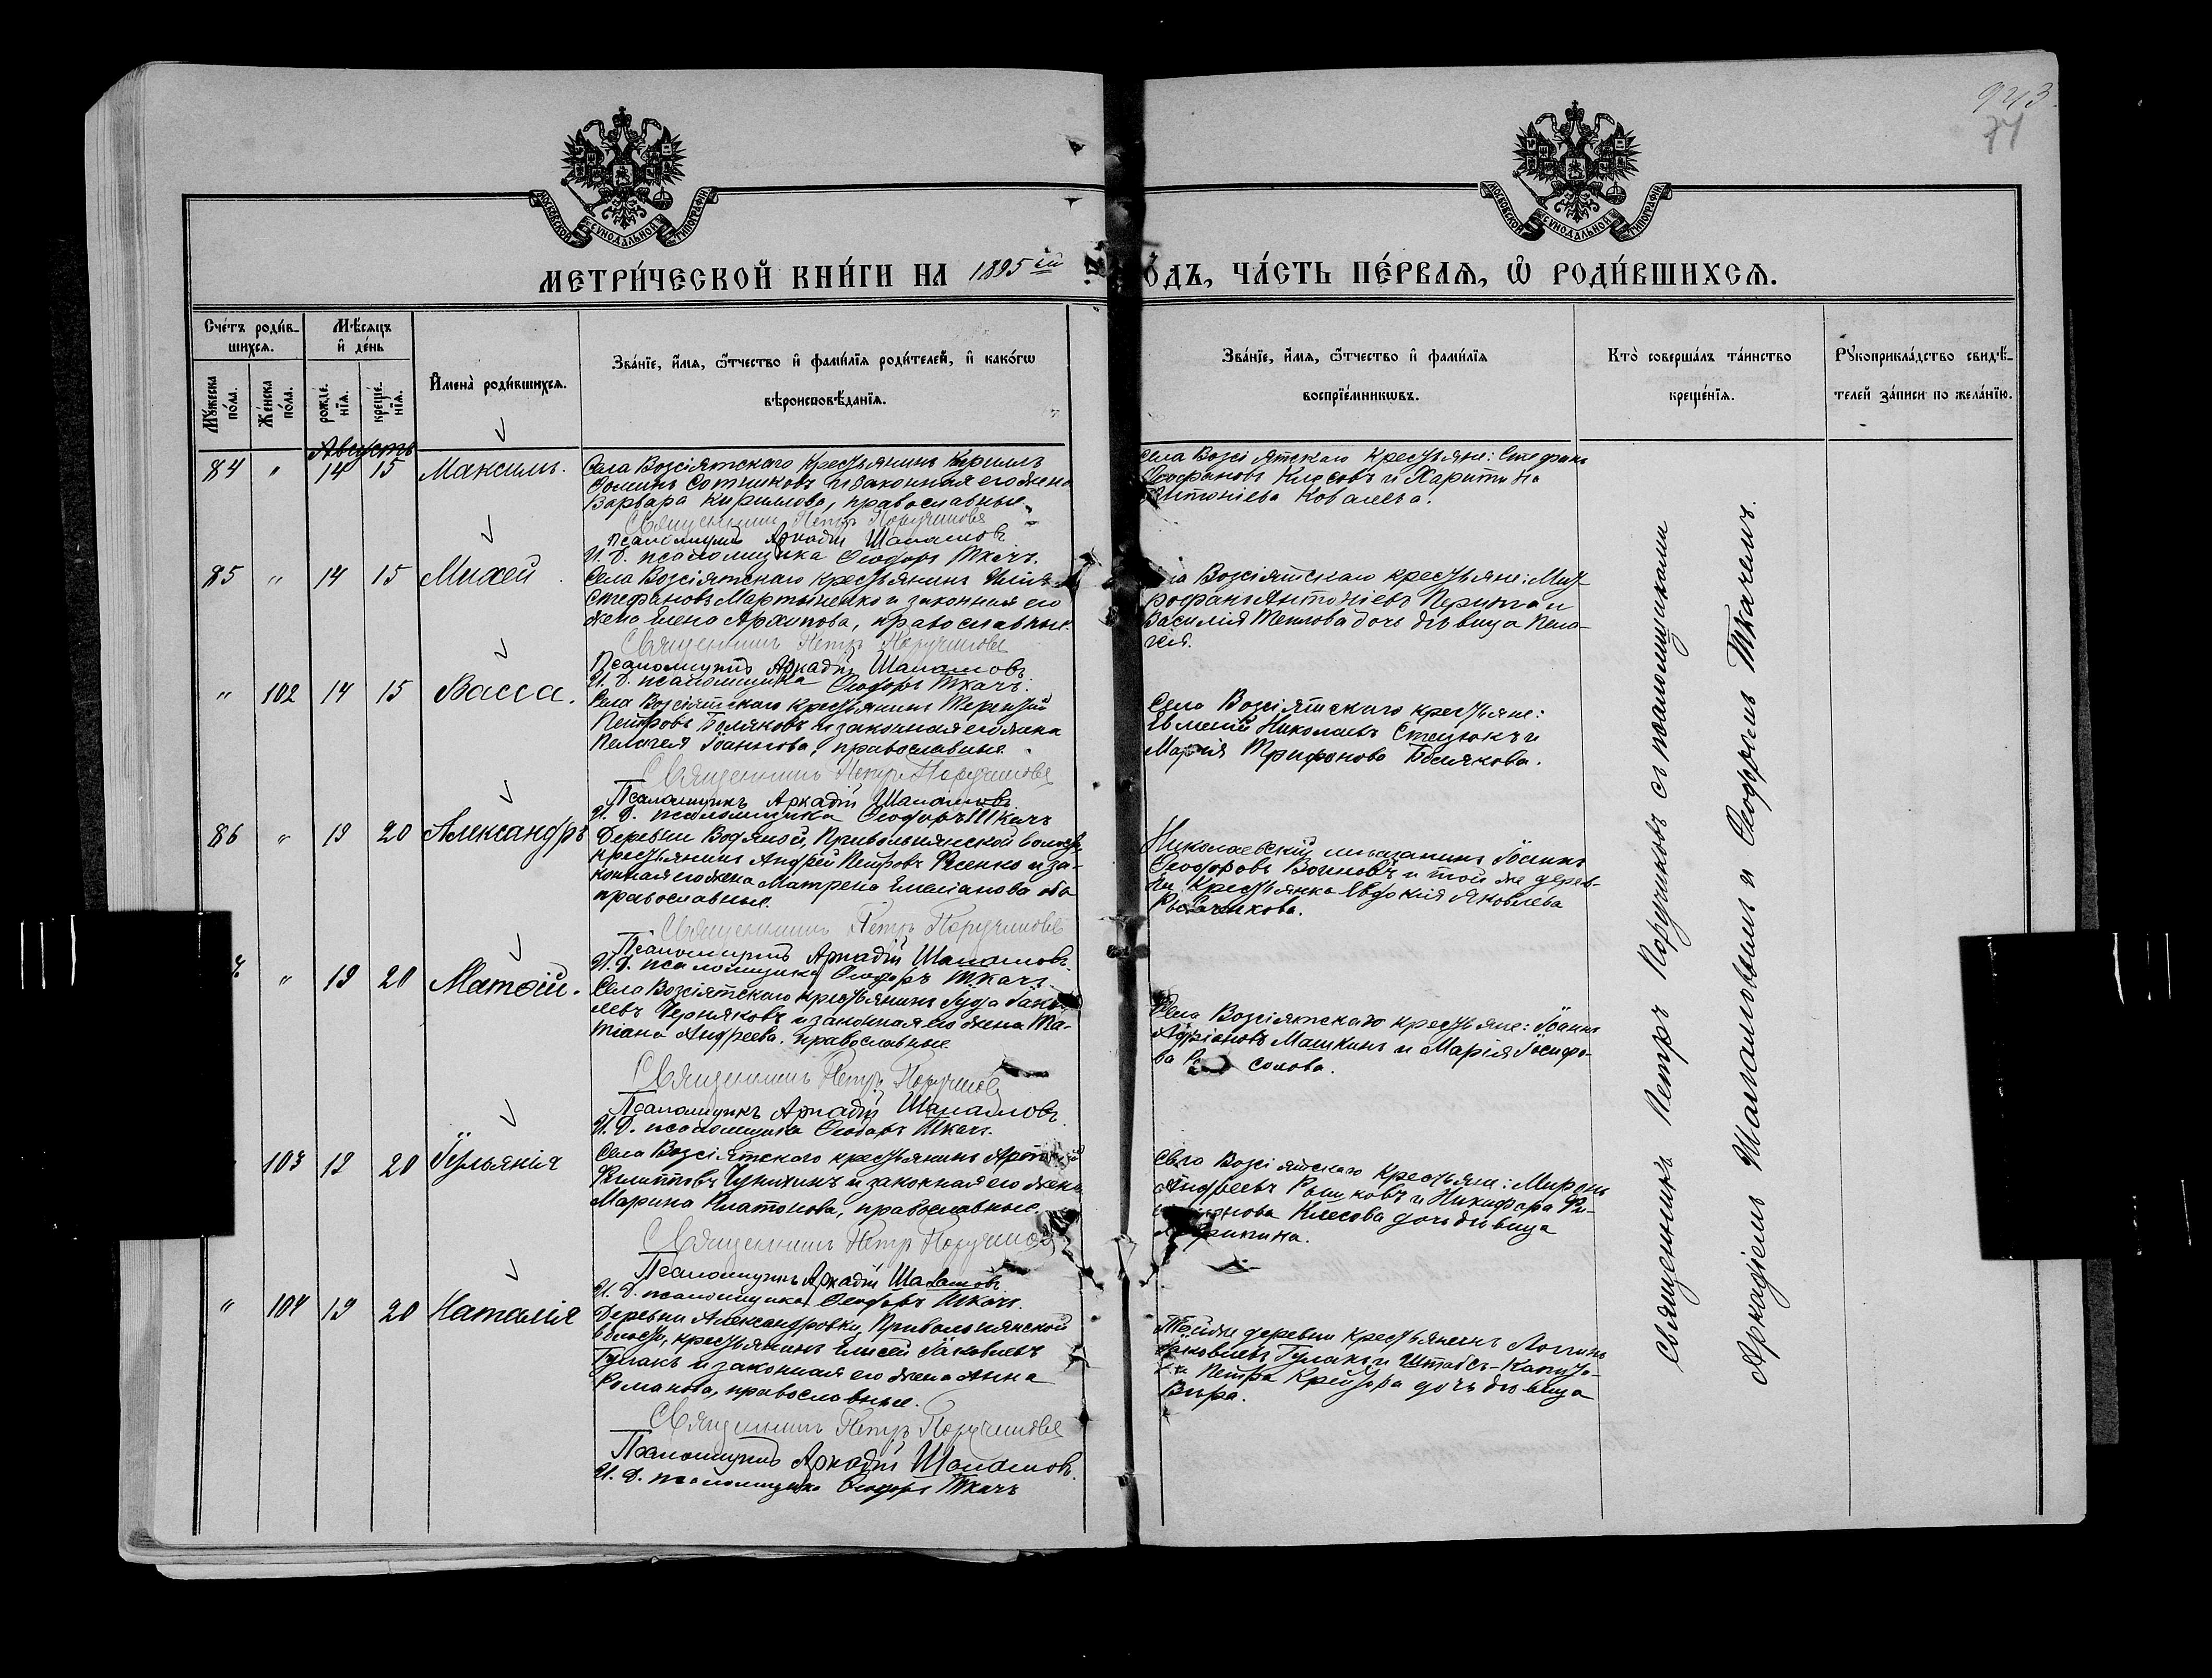 943
74
МОСКОВСКОЙ СѴНОДАЛЬНОЙ ТИПОГРАФІИ
МОСКОВСКОЙ СѴНОДАЛЬНОЙ ТИПОГРАФІИ
МЕТРИ́ЧЕСКОЙ КНИ́ГИ НА 1895 ый
О́ДЪ, ЧА́СТЬ ПЕ́РВАѦ, Ѡ҆ РОДИ́ВШИХСѦ.
Сче́тъ роди́в-
шихсѧ.
Мꙋ́жеска по́ла.
Же́нска по́ла.
Мѣ́сѧцъ
и҆ де́нь
рожде́нїѧ.
креще́нїѧ.
И҆мена̀ роди́вшихсѧ.
Зва́нїе, и҆́мѧ, ѻ҆́тчество и҆ фами́лїѧ роди́телей, и҆ како́гѡ
вѣроисповѣ́данїѧ.
Зва́нїе, и҆́мѧ, ѻ҆́тчество и҆ фами́лїѧ
воспрїе́мникѡвъ.
Кто̀ соверша́лъ та́инство
креще́нїѧ.
Рꙋкоприкла́дство свидѣ́-
телей за́писи по жела́нїю.
Августъ
84 " 14 15 Максимъ.
Села Возсіятскаго крестьянинъ Кириллъ
Фоминъ Сотниковъ и законная его жена
Варвара Кирилова, православные.
Священникъ Петръ Поручиковъ
Псаломщикъ Аркадій Шаламовъ
И. Д. псаломщика Ѳеодоръ Ткачъ.
Села Возсіятскаго крестьяне: Стефанъ
Клесовъ и Харитина
Антоніева Ковалева.
85 " 14 15 Михей.
Села Возсіятскаго крестьянинъ Илія
Стефановъ Мартыненко и законная его
жена Елена Архипова, православные.
Священникъ Петръ Поручиковъ
Псаломщикъ Аркадій Шаламовъ.
И. Д. псаломщика Ѳеодоръ Ткачъ.
Возсіятскаго крестьяне: Мит-
рофанъ Антоніевъ и
Василія Теплова дочь дѣвица Пела-
гія.
" 102 14 15 Васса.
Села Возсіятскаго крестьянинъ Терентій
Петровъ Поляковъ и законная его жена
Пелагея Іоаннова, православные.
Священникъ Петръ Поручиковъ
Псаломщикъ Аркадій Шаламовъ.
И. Д. псаломщика Ѳеодоръ Ткачъ
Села Возсіятскаго крестьяне:
Евмений Николаевъ Стецюкъ и
Марія Трифонова
86 " 19 20 Александръ
Деревни Водяной, Привольнянской волости
крестьянинъ Андрей Петровъ Фесенко и за-
конная его жена Матрена Емеліанова оба
православные.
Священникъ Петръ Поручиковъ
Псаломщикъ Аркадій Шаламовъ.
И. Д. псаломщика Ѳеодоръ Ткачъ.
Николаевскій мѣщанинъ Іоаннъ
Ѳеодоровъ Воиновъ и той же дерев-
ни крестьянка Евдокія Яковлева
" 19 20 Матѳій.
Села Возсіятскаго крестьянинъ Іуда
Черняковъ и законная его жена Та-
тіана Андреева, православные.
Священникъ Петръ Поручиковъ
Псаломщикъ Аркадій Шаламовъ.
И. Д. псаломщика Ѳеодоръ Ткачъ.
Села Возсіятскаго крестьяне: Іоаннъ
Адріановъ Машкинъ и Марія Іосифо-
ва
103 19 20 Іульянія
Села Возсіятскаго крестьянинъ
Филипповъ и законная его жена
Марина Платонова, православные.
Священникъ Петръ Поручиковъ
Псаломщикъ Аркадій Шаламовъ.
И. Д. псаломщика Ѳеодоръ Ткачъ.
Села Возсіятскаго крестьяне: Миронъ
Андреевъ и Никифора
Клесова дочь дѣвица
" 104 19 20 Наталія
Деревни Александровки, Привольнянской
волости, крестьянинъ Елисей Іаковлевъ
Гулакъ и законная его жена Анна
Романова, православные.
Священникъ Петръ Поручиковъ
Псаломщикъ Аркадій Шаламовъ.
И. Д. псаломщика Ѳеодоръ Ткачъ
Той же деревни крестьянинъ Логинъ
Іаковлевъ Гулакъ и Штабсъ-Капита-
на Петра Крейзера дочь дѣвица
Вѣра.
Священникъ Петръ Поручиковъ съ псаломщиками
Аркадіемъ Шаламовымъ и Ѳеодоромъ Ткачемъ.